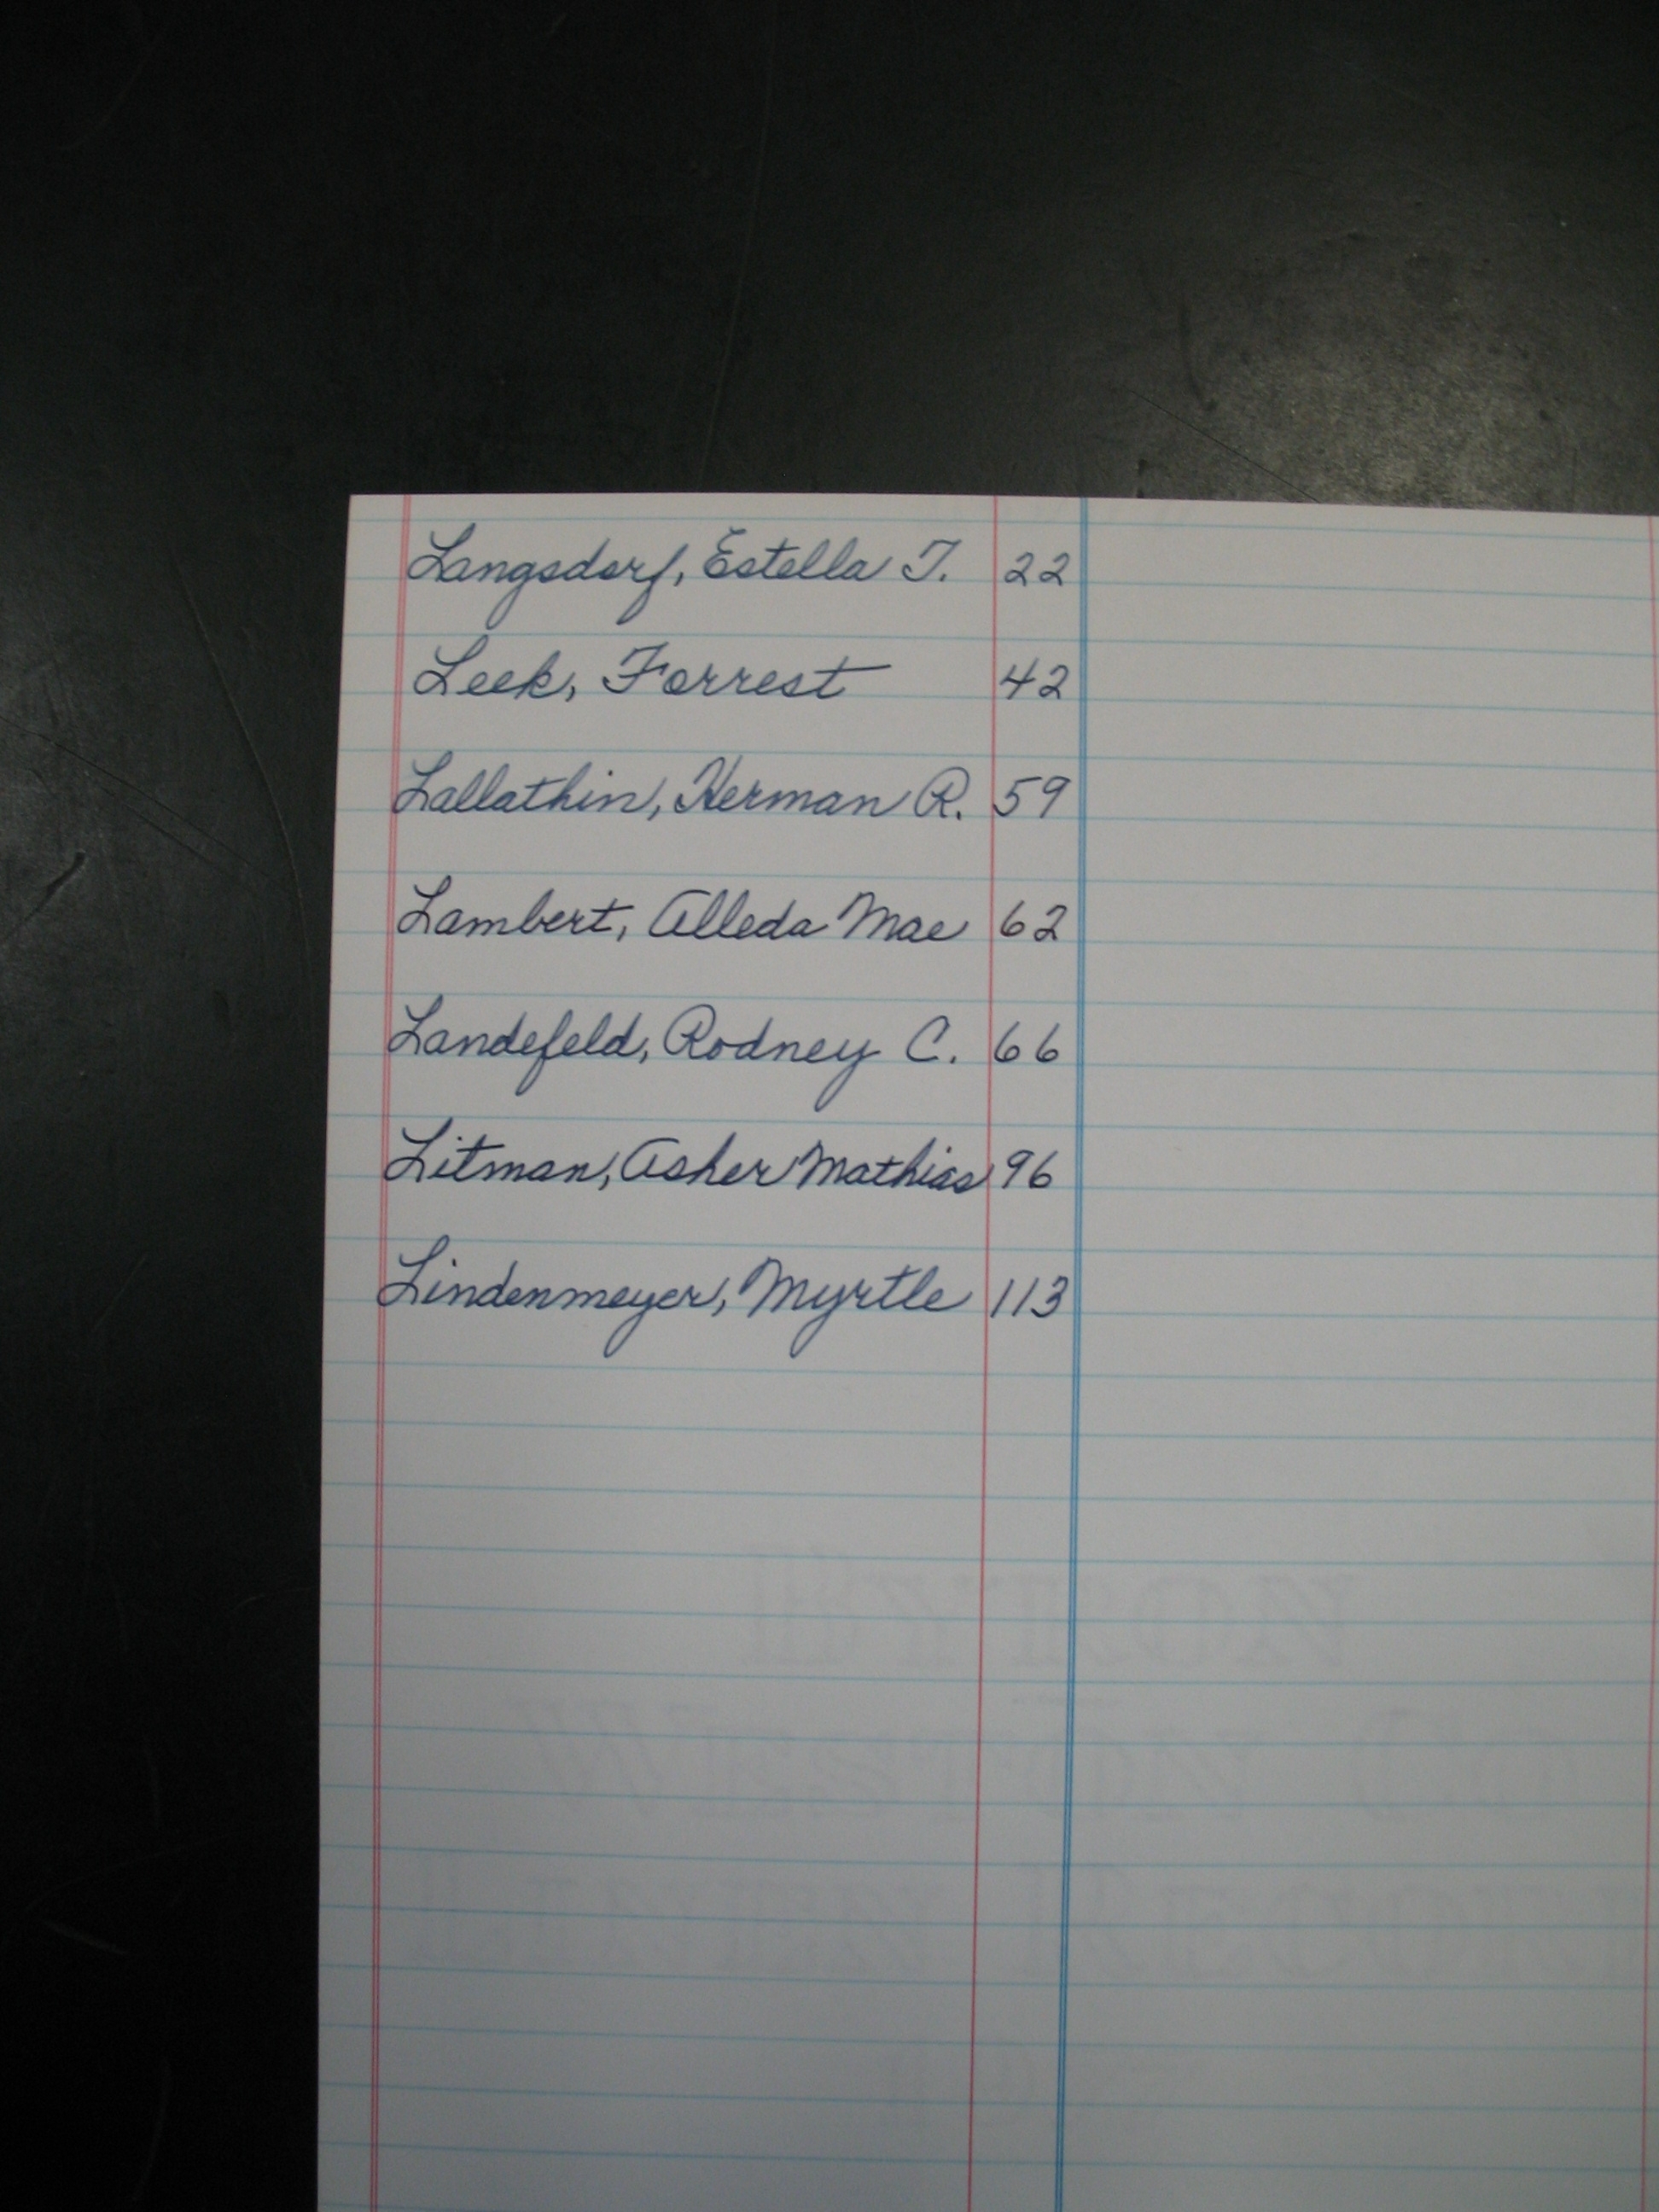 Langsdorf, Estella T. 22
Leek, Forrest 42
Lallathin, Herman R. 59
Lambert, Alleda Mae 62
Landefeld, Rodney C. 66
Litman, Asher Mathias 96
Lindenmeyer, Myrtle 113